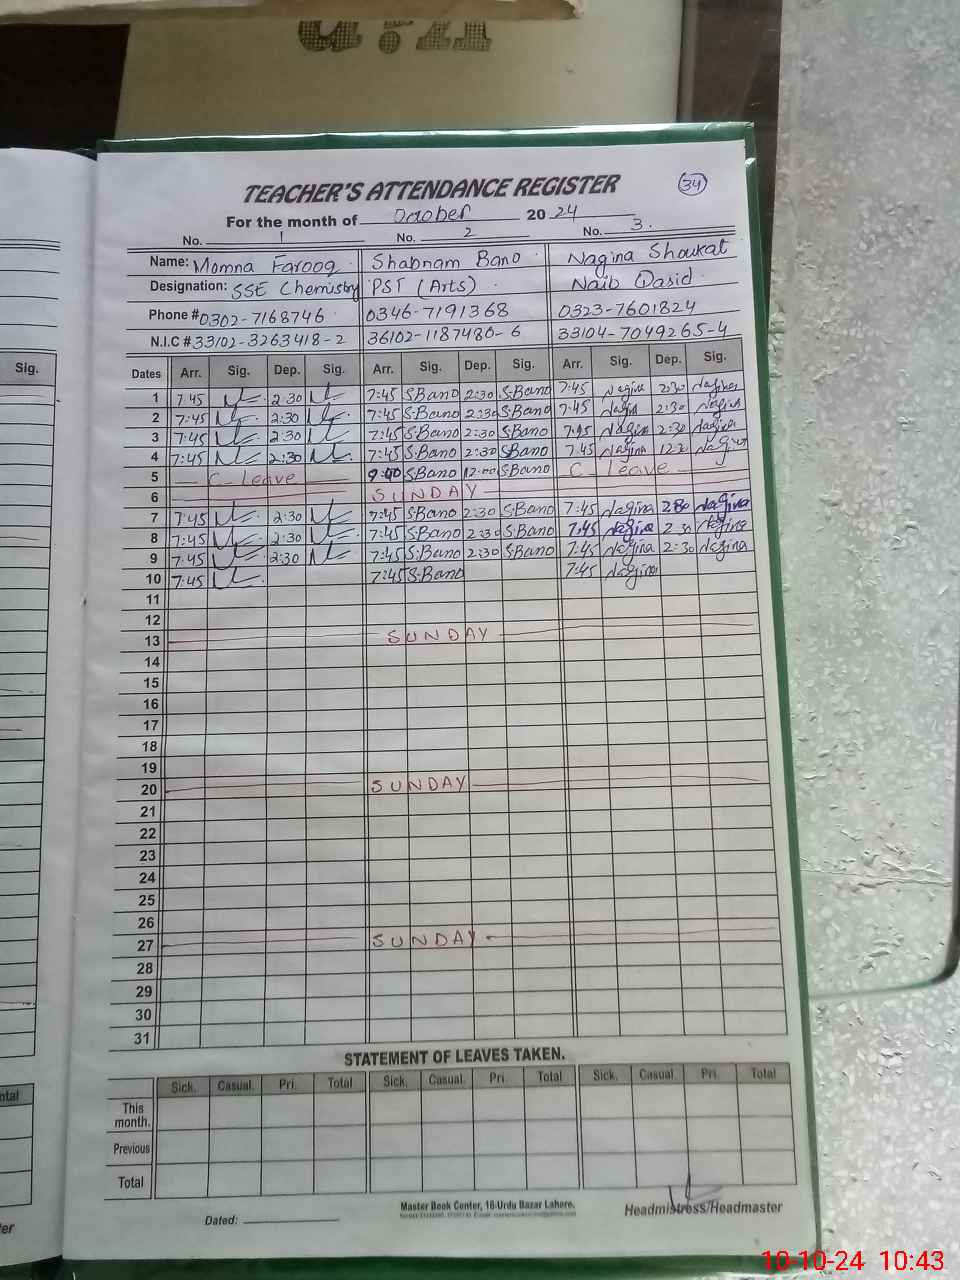 TEACHER'S ATTENDANCE REGISTER 34
For the month of October 2024
No. 1 No. 2 No. 3.
Name: Momna Farooq Shabnam Bano Nagina Shoukat
Designation: SSE Chemistry PST (Arts) Naib Qasid
Phone # 0302-7168746 0346-7191368 0323-7601824
N.I.C # 33102-3263418-2 36102-1187480-6 33104-7049265-4
Sig. Dates Arr. Sig. Dep. Sig. Arr. Sig. Dep. Sig. Arr. Sig. Dep. Sig.
1 7:45 2:30 7:45 S.Bano 2:30 S.Bano 7:45 Nagina 2:30 Nagina
2 7:45 2:30 7:45 S.Bano 2:30 S.Bano 7:45 Nagina 2:30 Nagina
3 7:45 2:30 7:45 S.Bano 2:30 S.Bano 7:45 Nagina 2:30 Nagina
4 7:45 2:30 7:45 S.Bano 2:30 S.Bano 7:45 Nagina Nagina
5 C-Leave 9:00 S.Bano 12:00 S.Bano C Leave
6 SUNDAY
7 7:45 2:30 7:45 S.Bano 2:30 S.Bano 7:45 Nagina 2:30 Nagina
8 7:45 2:30 7:45 S.Bano 2:30 S.Bano 7:45 Nagina 2:30 Nagina
9 7:45 2:30 7:45 S.Bano 2:30 S.Bano 7:45 Nagina 2:30 Nagina
10 7:45 7:45 S.Bano 7:45 Nagina
11
12
13 SUNDAY
14
15
16
17
18
19
20 SUNDAY
21
22
23
24
25
26
27 SUNDAY
28
29
30
31
STATEMENT OF LEAVES TAKEN.
Sick. Casual. Pri. Total Sick. Casual. Pri. Total Sick. Casual. Pri. Total
This month.
Previous
Total
Dated: Master Book Center, 16-Urdu Bazar Lahore. Headmistress/Headmaster
10-10-24 10:43